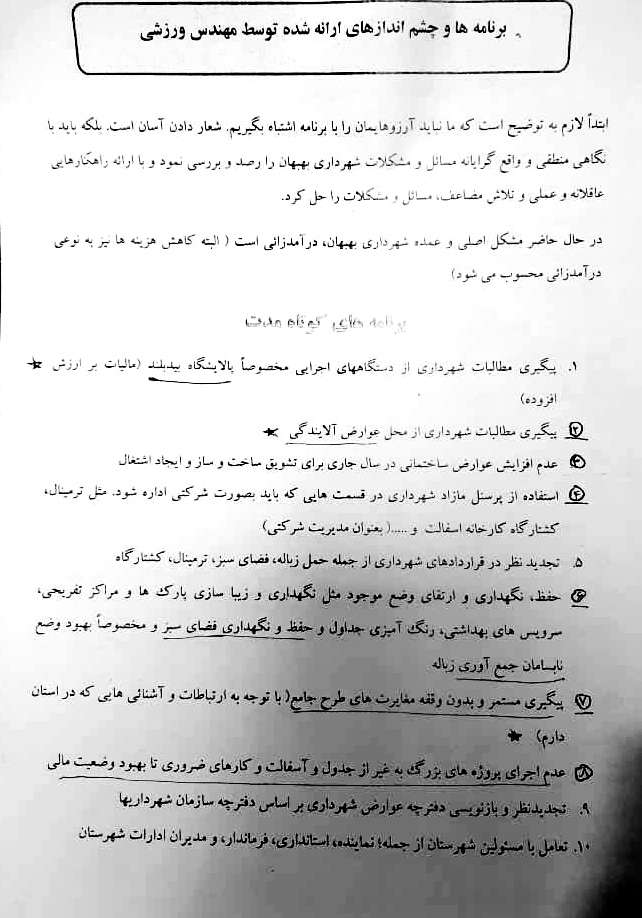 برنامه ها و چشم اندازهای ارائه شده توسط مهندس ورزشی
ابتدأ لازم به توضیح است که ما نباید آرزوهایمان را با برنامه اشتباه بگیریم. شعار دادن آسان است. بلکه باید با
نگاهی منطقی و واقع گرایانه مسائل و مشکلات شهرداری بهبهان را رصد و بررسی نمود و با ارائه راهکارهایی
عاقلانه و عملی و تلاش مضاعف، مسائل و مشکلات را حل کرد.
در حال حاضر مشکل اصلی و عمده شهرداری بهبهان، درآمدزائی است ( البته کاهش هزینه ها نیز به نوعی
درآمدزائی محسوب می شود)
برنامه های کوتاه مدت
۱. پیگیری مطالبات شهرداری از دستگاههای اجرایی مخصوصاً پالایشگاه بیدبلند (مالیات بر ارزش
افزوده)
۲ پیگیری مطالبات شهرداری از محل عوارض آلایندگی
۳ عدم افزایش عوارض ساختمانی در سال جاری برای تشویق ساخت و ساز و ایجاد اشتغال
۴ استفاده از پرسنل مازاد شهرداری در قسمت هایی که باید بصورت شرکتی اداره شود. مثل ترمینال،
کشتارگاه کارخانه اسفالت و .....( بعنوان مدیریت شرکتی)
۵. تجدید نظر در قراردادهای شهرداری از جمله حمل زباله، فضای سبز، ترمینال، کشتارگاه
۶ حفظ، نگهداری و ارتقای وضع موجود مثل نگهداری و زیبا سازی پارک ها و مراکز تفریحی،
سرویس های بهداشتی، رنگ آمیزی جداول و حفظ و نگهداری فضای سبز و مخصوصاً بهبود وضع
نابسامان جمع آوری زباله
۷ پیگیری مستمر و بدون وقفه مغایرت های طرح جامع( با توجه به ارتباطات و آشنائی هایی که در استان
دارم)
۸ عدم اجرای پروژه های بزرگ به غیر از جدول و آسفالت و کارهای ضروری تا بهبود وضعیت مالی
۹. تجدیدنظر و بازنویسی دفترچه عوارض شهرداری بر اساس دفترچه سازمان شهرداریها
۱۰. تعامل با مسئولین شهرستان از جمله؛ نماینده، استانداری، فرماندار، و مدیران ادارات شهرستان